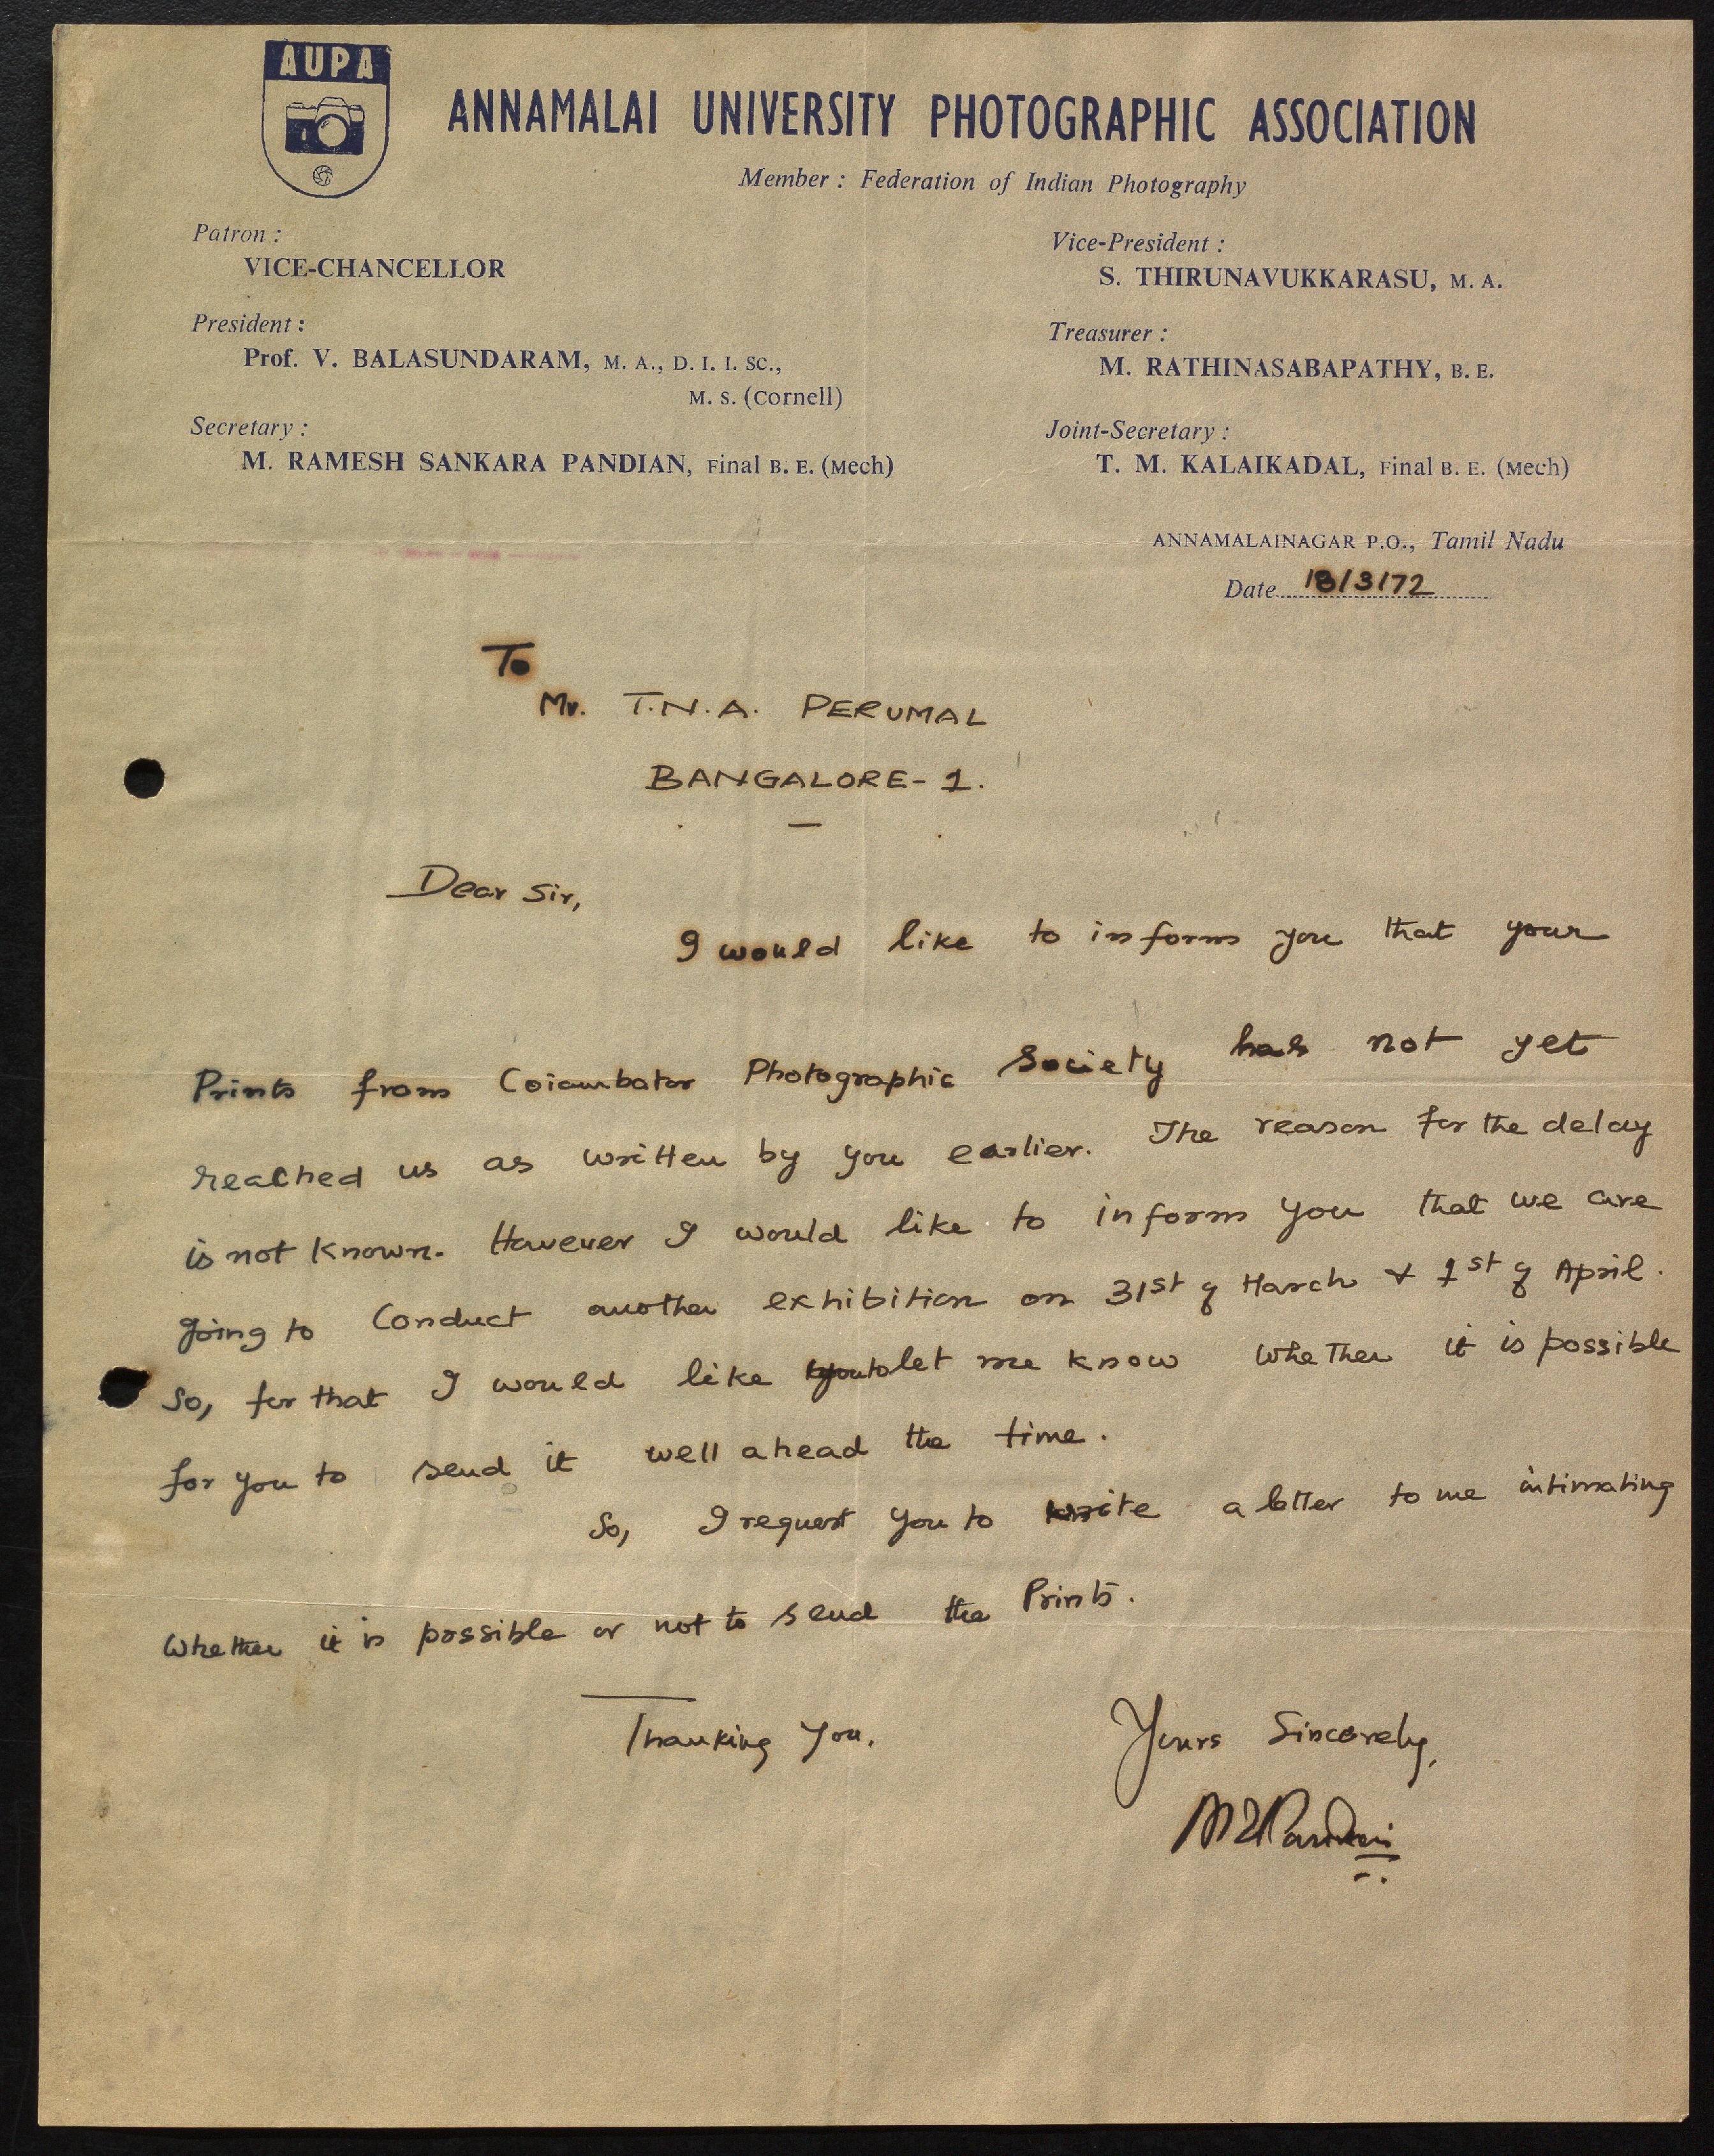 AUPA
ANNAMALAI UNIVERSITY PHOTOGRAPHIC ASSOCIATION
Member : Federation of Indian Photography
Patron :
VICE-CHANCELLOR
President :
Prof. V. BALASUNDARAM, M. A., D. I. I. SC.,
M. S. (Cornell)
Secretary :
M. RAMESH SANKARA PANDIAN, Final B. E. (Mech)
Vice-President :
S. THIRUNAVUKKARASU, M. A.
Treasurer :
M. RATHINASABAPATHY, B. E.
Joint-Secretary :
T. M. KALAIKADAL, Final B. E. (Mech)
ANNAMALAINAGAR P.O., Tamil Nadu
Date 18/3/72
To
Mr. T.N.A. PERUMAL
BANGALORE-1.
Dear Sir,
I would like to inform you that your
Prints from Coiambator Photographic Society has not yet
reached us as written by you earlier. The reason for the delay
is not known. However I would like to inform you that we are
going to Conduct another exhibition on 31st of March & 1st of April.
So, for that I would like you to let me know whether it is possible
for you to send it well ahead the time.
So, I request you to write a letter to me intimating
whether it is possible or not to send the Prints.
Thanking You.
Yours Sincerely,